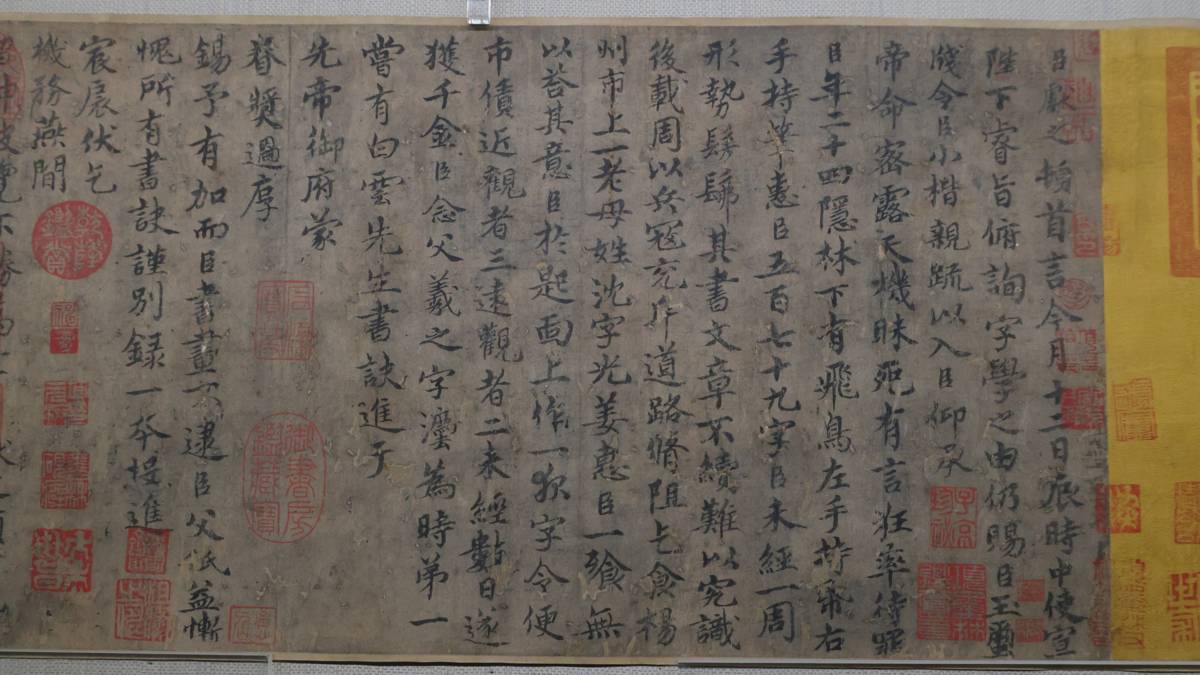 臣獻之頓首言今月十二日辰時中使宣
陛下睿旨俯詢字學之由仍賜臣玉璽
牋令臣小楷親疏以入臣仰承
帝命密露天機昧死有言狂率待罪
臣年二十四隱林下有飛鳥左手持紙右
手持筆惠臣五百七十九字臣未經一周
形勢髣髴其書文章不續難以究識
後載周以兵寇充斥道路脩阻乞食楊
州市上一老母姓沈字光姜惠臣一飡無
以荅其意臣於匙面上作一夜字令便
市債近觀者三遠觀者二未經數日遂
獲千金臣念父羲之字灋為時第一
嘗有白雲先生書訣進于
先帝御府蒙
眷獎過厚
錫予有加而臣書畫不逮臣父祇益慚
愧所有書訣謹別録一本投進
宸扆伏乞
機務燕閒
神披覽不勝
石渠寶笈
御書房鑑藏寶
乾隆鑑賞